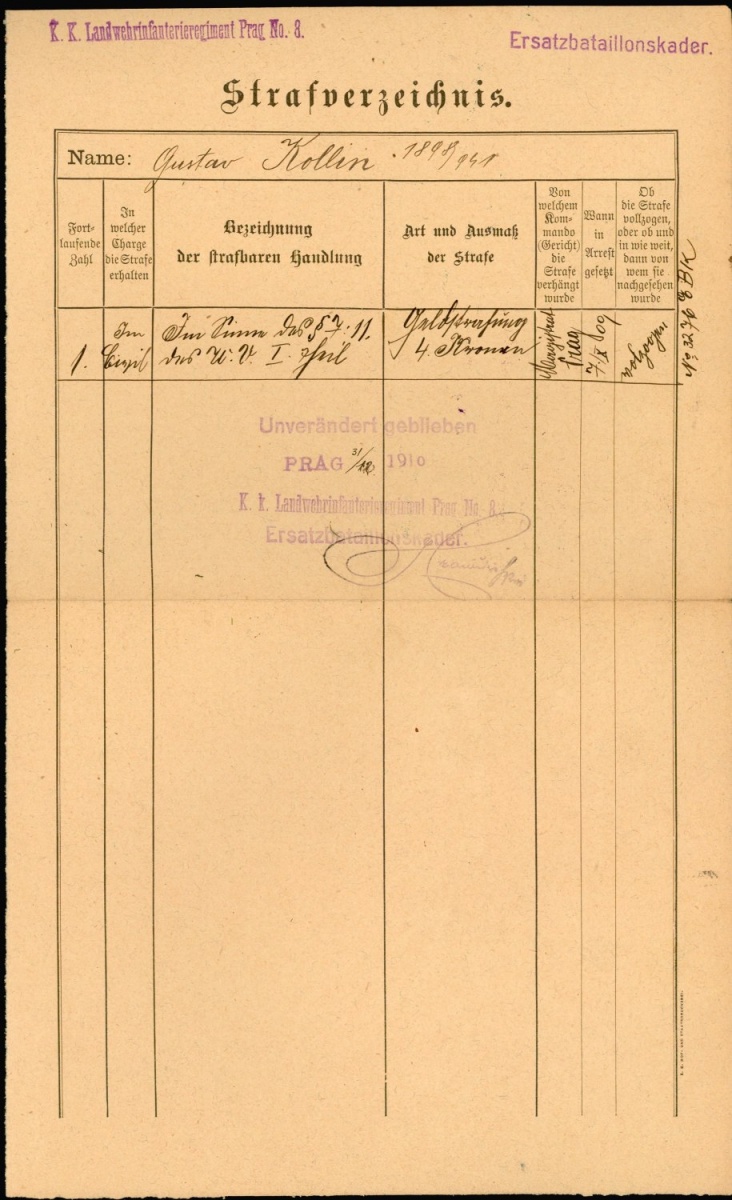 K. K. Landwehrinfanterieregiment Prag No. 8.
Ersatzbataillonskader.
Strafverzeichnis.
Name: Gustav Kollin 1898/941
Fort-
laufende
Zahl
In
welcher
Charge
die Strafe
erhalten
Bezeichnung
der strafbaren Handlung
Art und Ausmaß
der Strafe
Von
welchem
Kom-
mando
(Gericht)
die
Strafe
verhängt
wurde
Wann
in
Arrest
gesetzt
Ob
die Strafe
vollzogen,
oder ob und
in wie weit,
dann von
wem sie
nachgesehen
wurde
1.
Im
Civil
Im Sinne des § 7:11.
des W. V. I. Theil
Geldstrafung
4 Kronen
Magistrat
Prag
7/IX 909
vollzogen
No 3276 EBK
Unverändert geblieben
PRAG 31/12 1910
K. k. Landwehrinfanterieregiment Prag No. 8.
Ersatzbataillonskader.